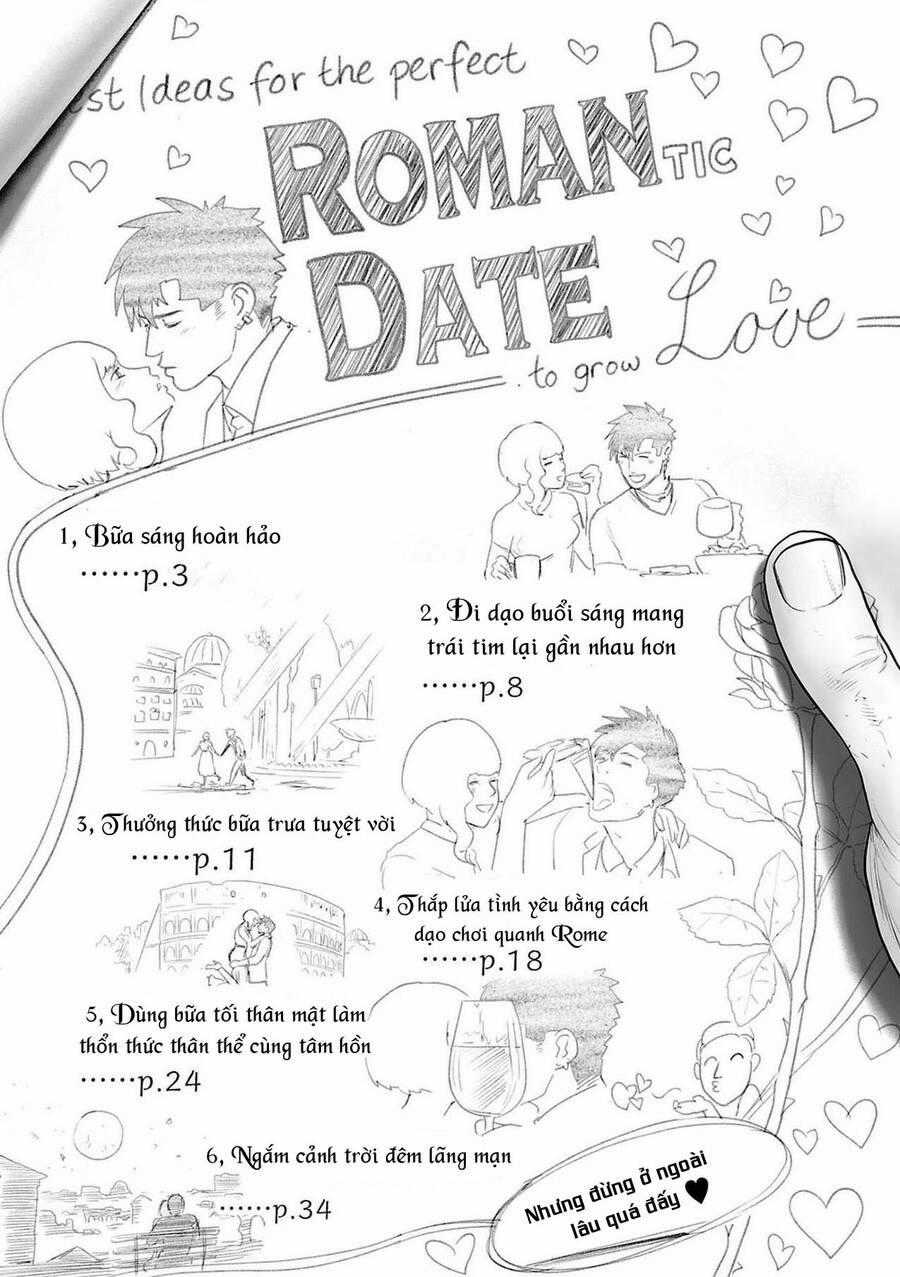 Ideas for the perfect
ROMANTIC
DATE
to grow Love
1, Bữa sáng hoàn hảo
······p.3
2, Đi dạo buổi sáng mang
trái tim lại gần nhau hơn
······p.8
3, Thưởng thức bữa trưa tuyệt vời
······p.11
4, Thắp lửa tình yêu bằng cách
dạo chơi quanh Rome
······p.18
5, Dùng bữa tối thân mật làm
thổn thức thân thể cùng tâm hồn
······p.24
6, Ngắm cảnh trời đêm lãng mạn
······p.34
Nhưng đừng ở ngoài
lâu quá đấy ♥